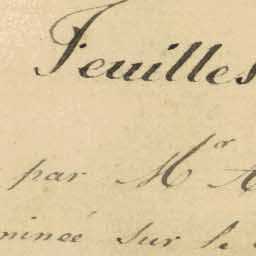 Feuilles
par Mr A
minée sur le